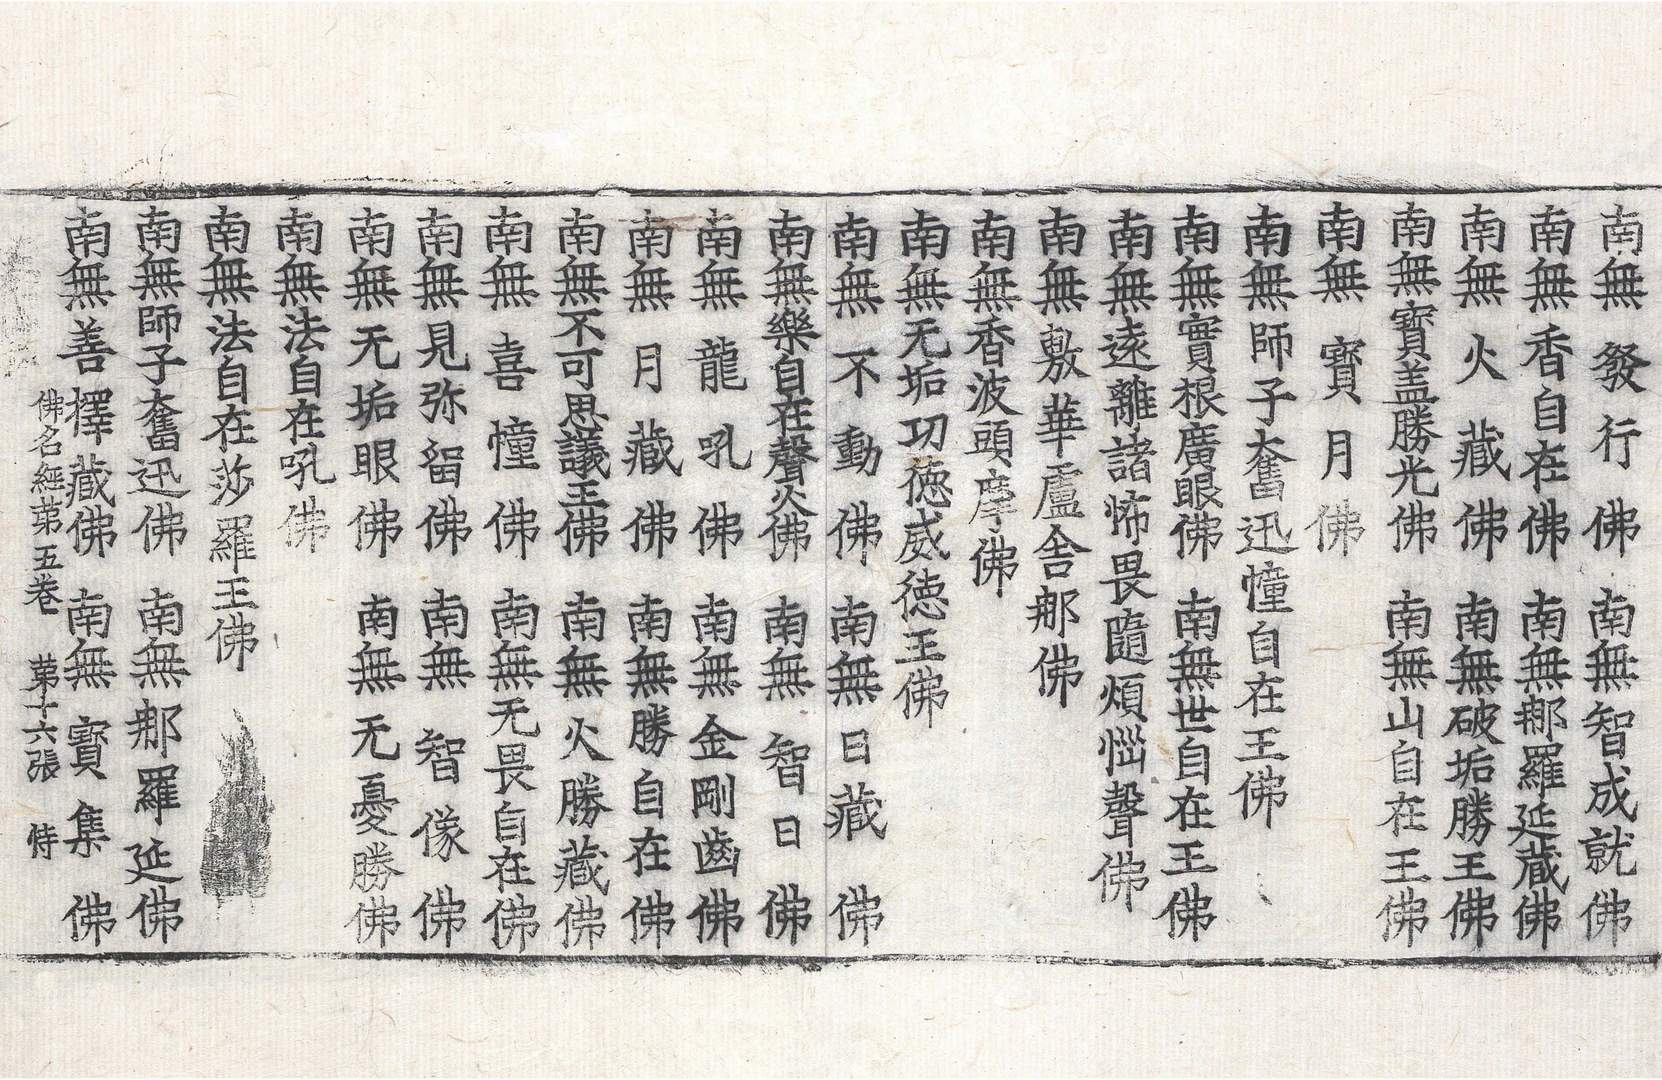 南無發行佛 南無智成就佛
南無香自在佛 南無那羅延藏佛
南無火藏佛 南無破垢勝王佛
南無寶盖勝光佛 南無山自在王佛
南無寶月佛
南無師子奮迅憧自在王佛
南無寶根廣眼佛 南無世自在王佛
南無遠離諸怖畏隨煩惱聲佛
南無敷華盧舎那佛
南無香波頭摩佛
南無无垢功徳威徳王佛
南無不動佛 南無日藏佛
南無樂自在聲火佛 南無智日佛
南無龍吼佛 南無金剛齒佛
南無月藏佛 南無勝自在佛
南無不可思議王佛 南無火勝藏佛
南無喜憧佛 南無无畏自在佛
南無見弥留佛 南無智像佛
南無无垢眼佛 南無无憂勝佛
南無法自在吼佛
南無法自在莎羅王佛
南無師子奮迅佛 南無那羅延佛
南無善擇藏佛 南無寶集佛
佛名經苐五卷 苐十六張 恃